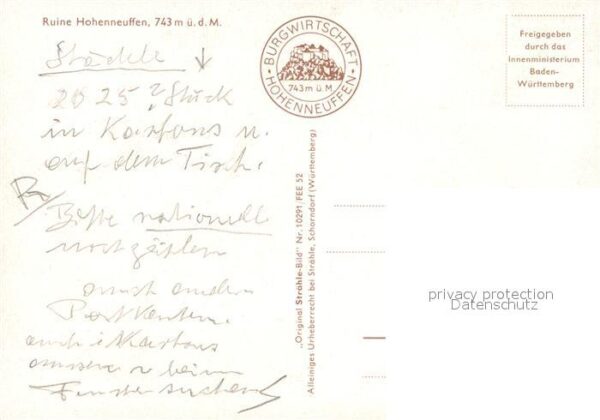 Ruine Hohenneuffen, 743 m ü. d. M.
BURGWIRTSCHAFT
HOHENNEUFFEN
743 m ü. M
Freigegeben
durch das
Innenministerium
Baden-
Württemberg
2025 ? Stück
in Kartons u.
auf dem Tisch.
Bitte rationell
noch zählen
auch andern
Postkarten.
auch i Kartons
beim
Fenster suchen
„Original Strähle-Bild" Nr. 10291/FEE 52
Alleiniges Urheberrecht bei Strähle, Schorndorf (Württemberg)
privacy protection
Datenschutz